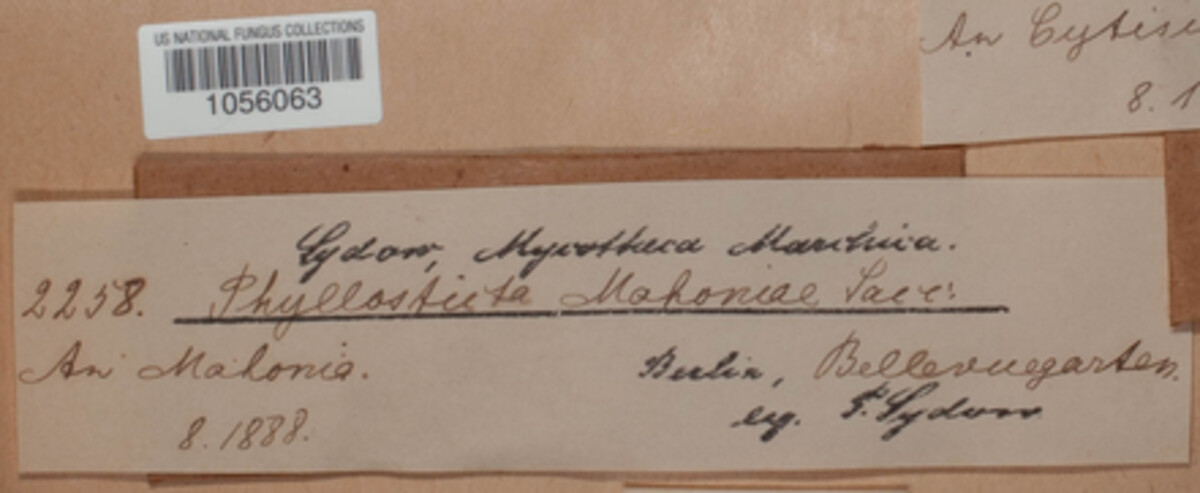 US NATIONAL FUNGUS COLLECTIONS
1056063
An Cytisu
8. 1
Sydow, Mycotheca Marchica.
2258. Phyllosticta Mahoniae Sacc.
An Mahonia.
Berlin, Bellevuegarten.
8. 1888.
leg. P. Sydow